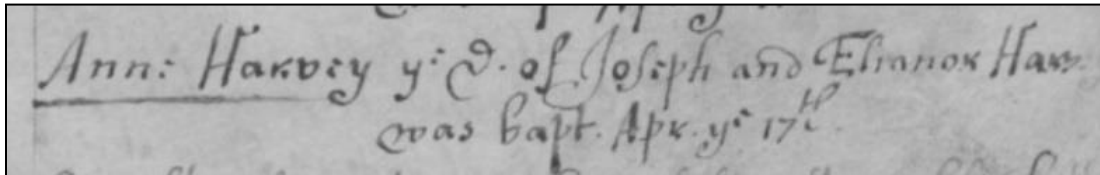 Anne Harvey ye D. of Joseph and Elianor Harv.
was bapt. Apr. ye 17th.